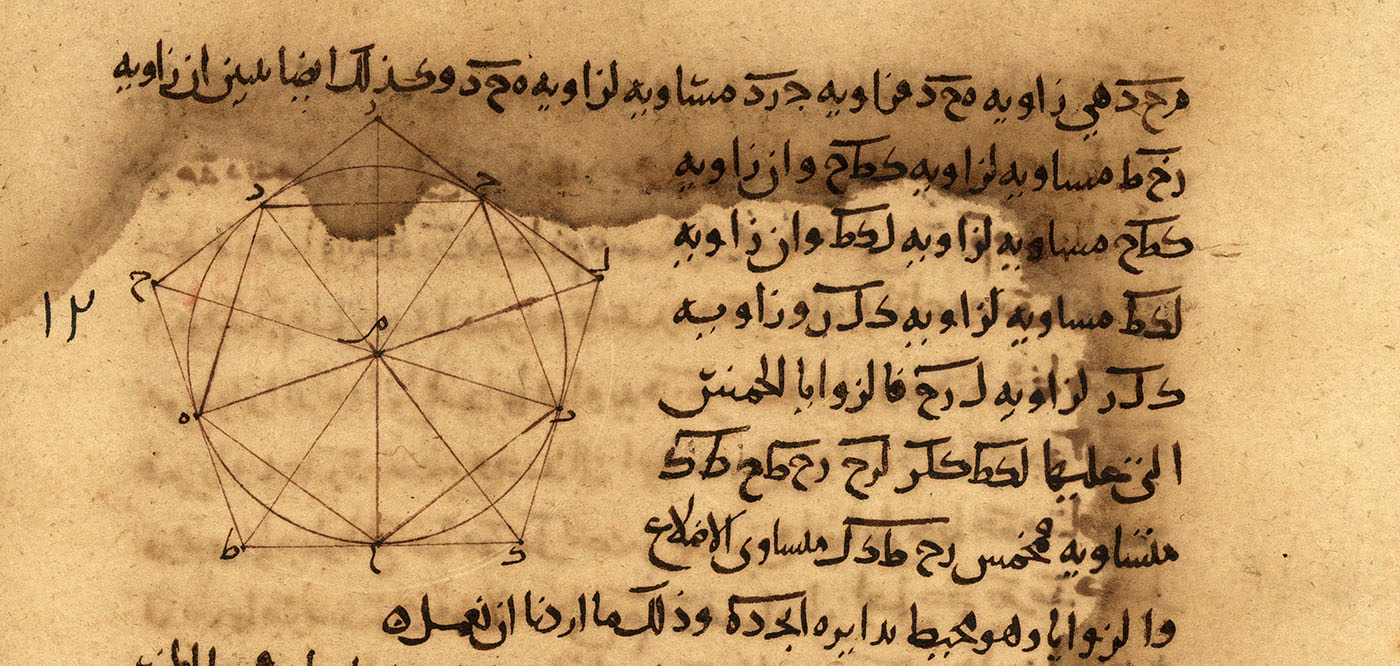 هي زاويه هحد فزاويه جرد مساويه لزاويه هحد وكذلك ايضا نبين ان زاويه
رحط مساويه لزاويه كطح وان زاويه
كطح مساويه لزاويه لكط وان زاويه
لكط مساويه لزاويه كلر وزاويه
كلر لزاويه لرح فالزوايا الخمس
التي عليها لكط كلر لرح رحط
متساويه فمخمس رح طكل متساوى الاضلاع
والزوايا وهو محيط بدايره ابجده وذلك ما اردنا ان نعمل ه
ر
د
ج
ح
ل
م
ه
ب
ط
ا
ك
١٢